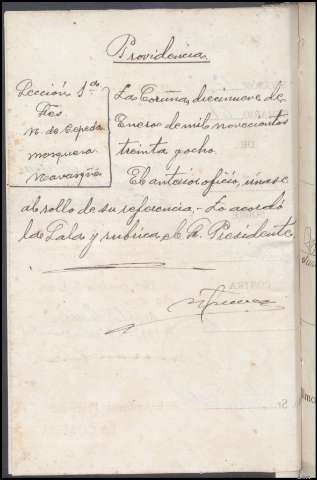 Providencia
Sección 1ª
Tres
N. de Cepeda
Mosquera
Navarque
La Coruña, diecinueve de
Enero de mil novecientos
treinta y ocho.
El anterior oficio, únase
al rollo de su referencia.- Lo acordó
la Sala y rubrica el Sr. Presidente